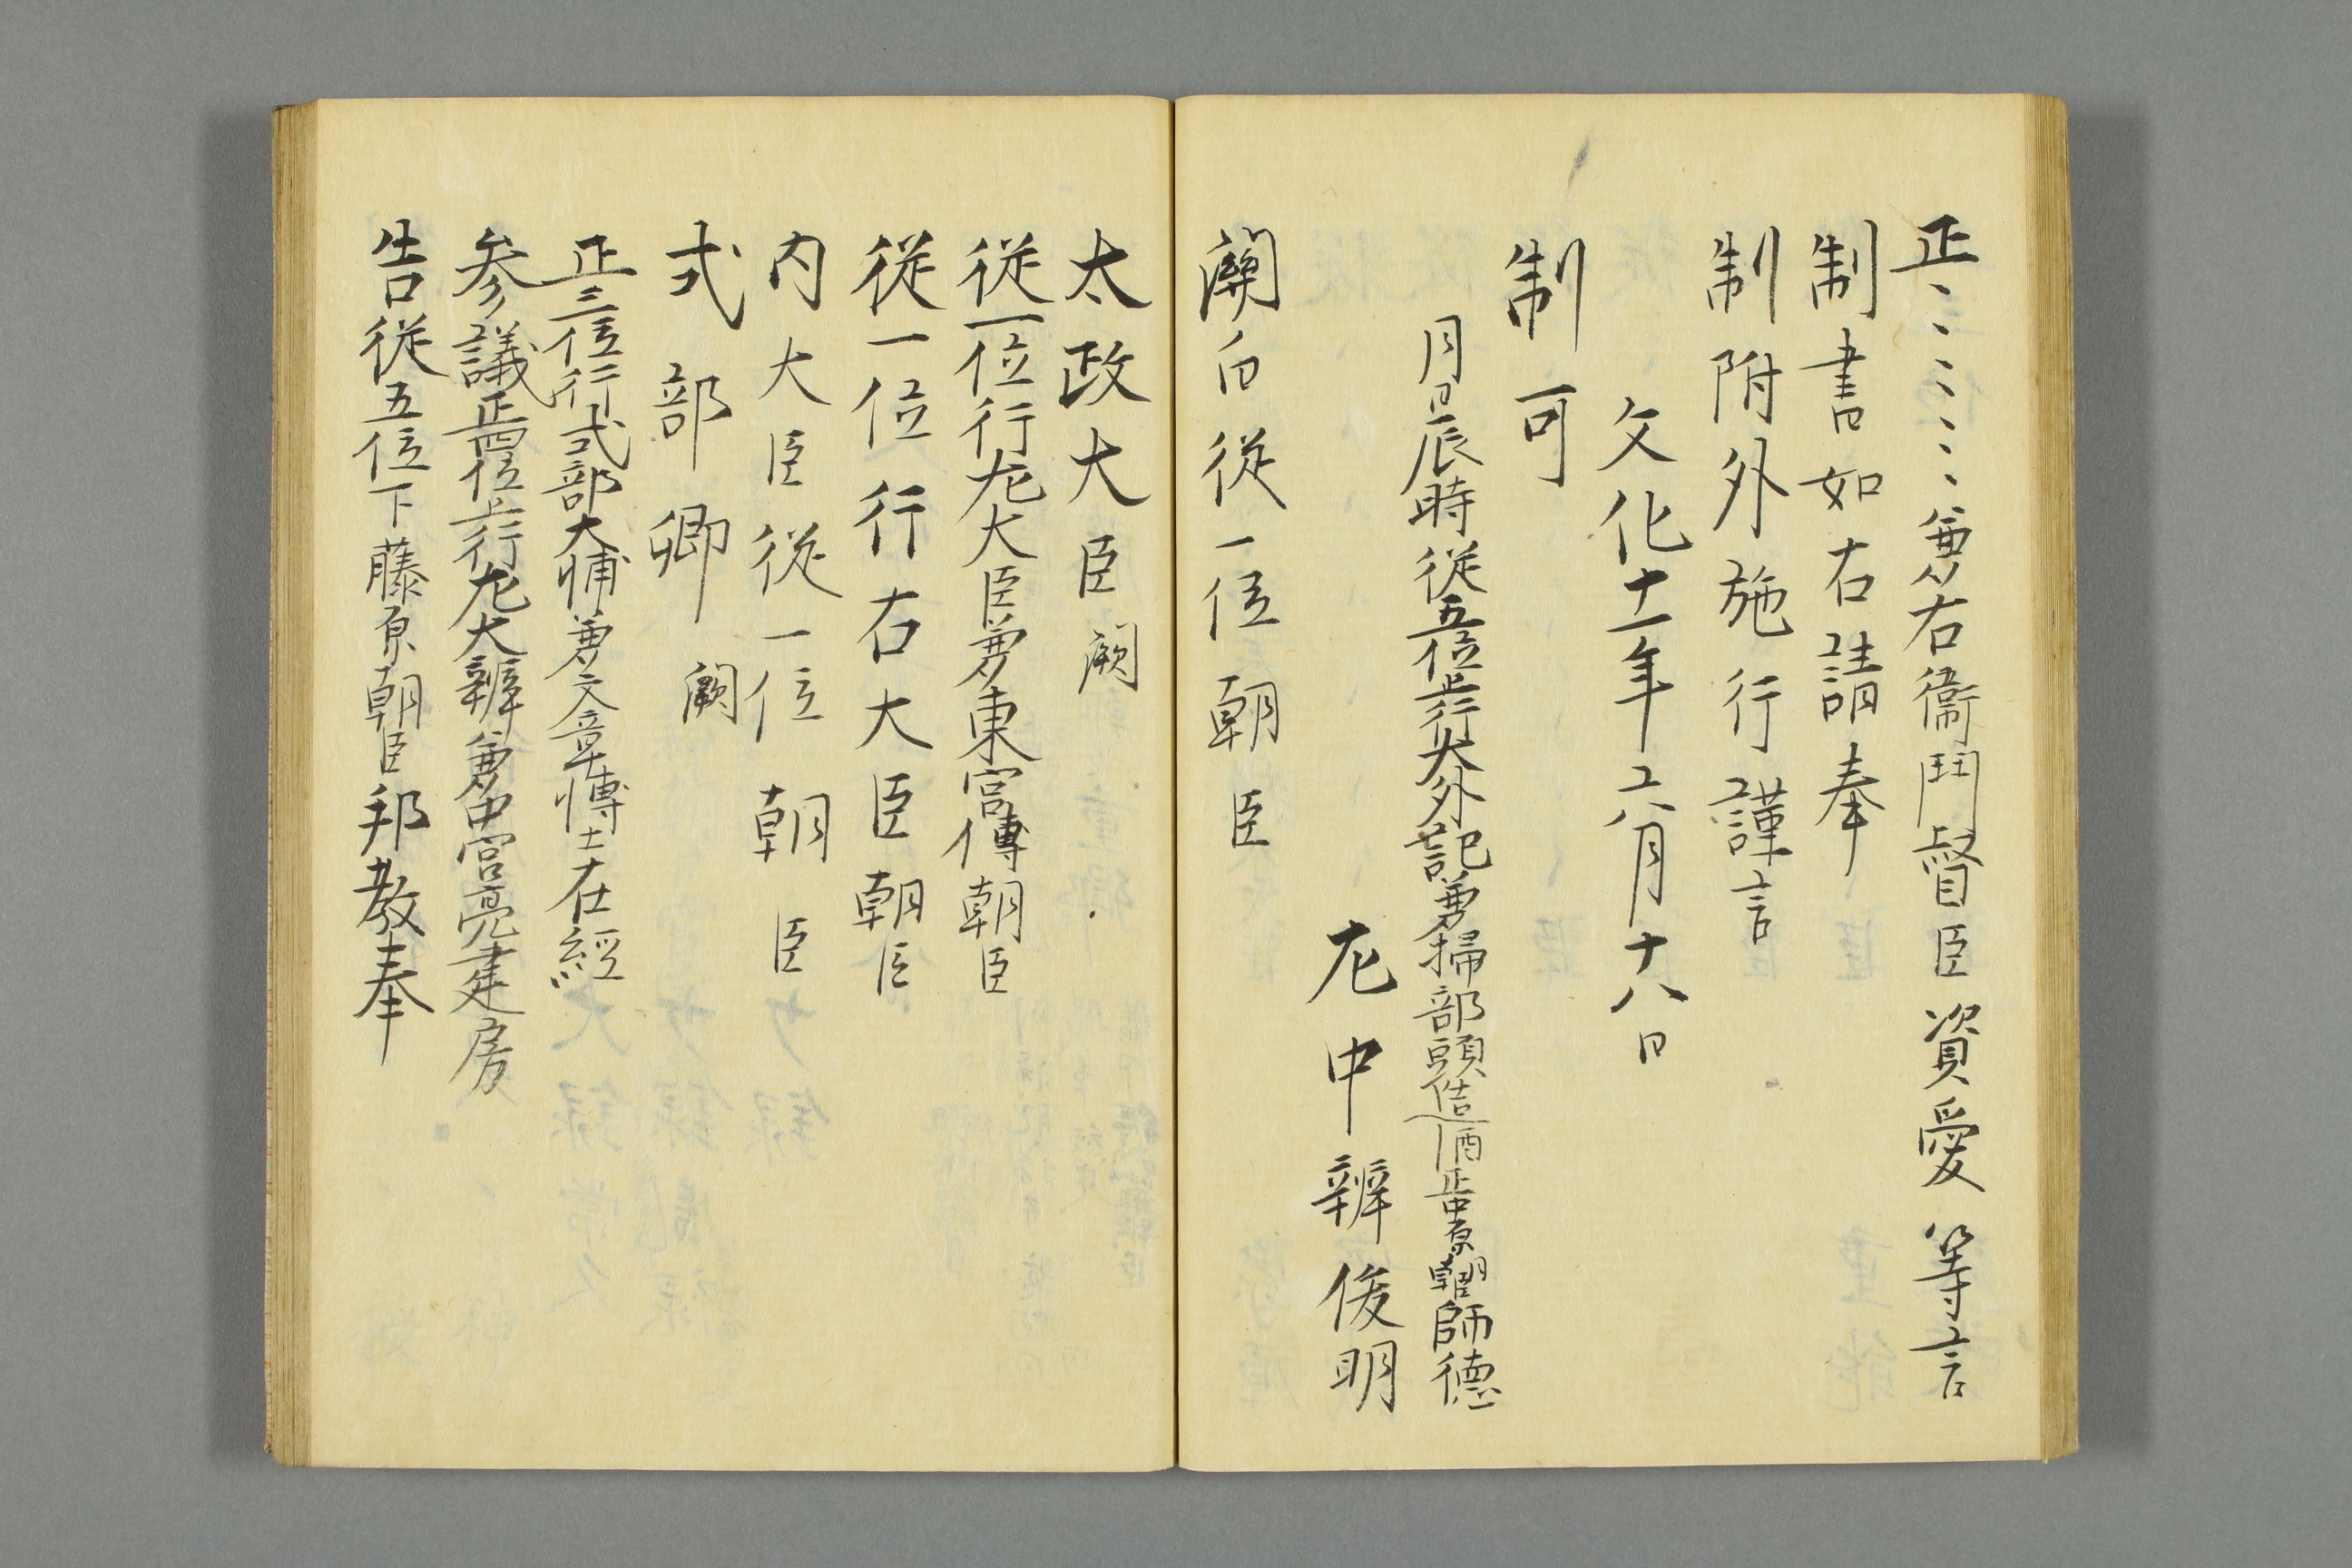 正、、、、、、兼右衛門督臣資愛等言
制書如右請奉
制附外施行謹言
文化十一年六月十八日
制可
月日辰時従五位上行大外記兼掃部頭造酒正中原朝臣師徳
左中辨俊明
関白従一位朝臣
太政大臣闕
従一位行左大臣兼東宮傅朝臣
従一位行右大臣朝臣
内大臣従一位朝臣
式部卿闕
正三位行式部大輔兼文章博士在経
参議正四位上行左大辨兼中宮亮建房
告従五位下藤原朝臣邦教奉